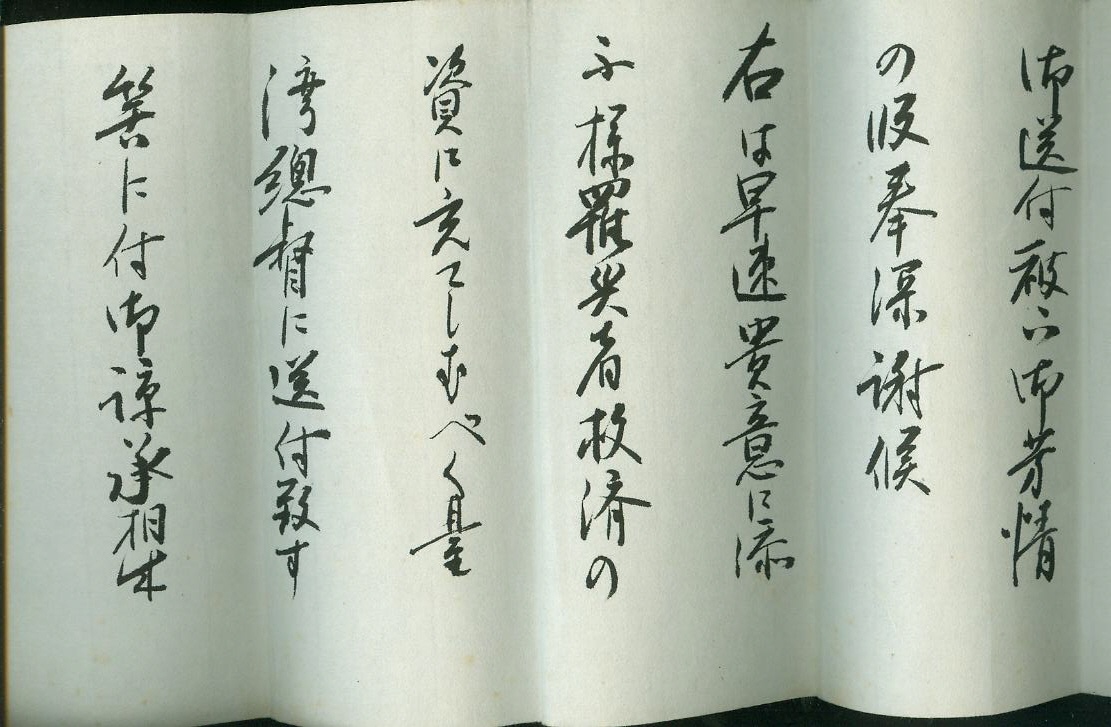 御送付被下御芳情
の段奉深謝候
右は早速貴意に添
ふ様罹災者救済の
資に充てしむべく臺
湾總督に送付致す
筈に付御諒承相成